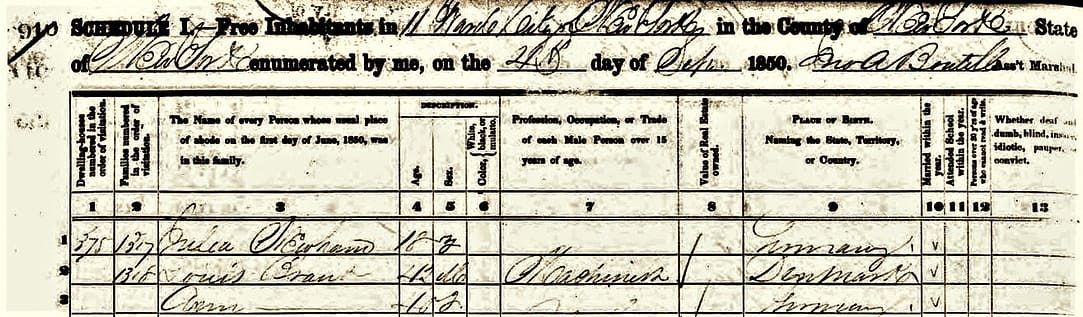 910 SCHEDULE I.—Free Inhabitants in 11 Ward City New York in the County of New York State
of New York enumerated by me, on the 4th day of Sepr 1850. Jno A Boutell Ass't Marshal
Dwelling-houses numbered in the order of visitation. Families numbered in the order of visitation. The Name of every Person whose usual place of abode on the first day of June, 1850, was in this family. DESCRIPTION. Age. Sex. Color, White, black, or mulatto. Profession, Occupation, or Trade of each Male Person over 15 years of age. Value of Real Estate owned. PLACE OF BIRTH. Naming the State, Territory, or Country. Married within the year. Attended School within the year. Persons over 20 y'rs of age who cannot read & write. Whether deaf and dumb, blind, insane, idiotic, pauper, or convict.
1 2 3 4 5 6 7 8 9 10 11 12 13
1 375 1317 18 F Germany
2 1318 Louis 42 M Machinist Denmark
3 Ann 40 F Germany